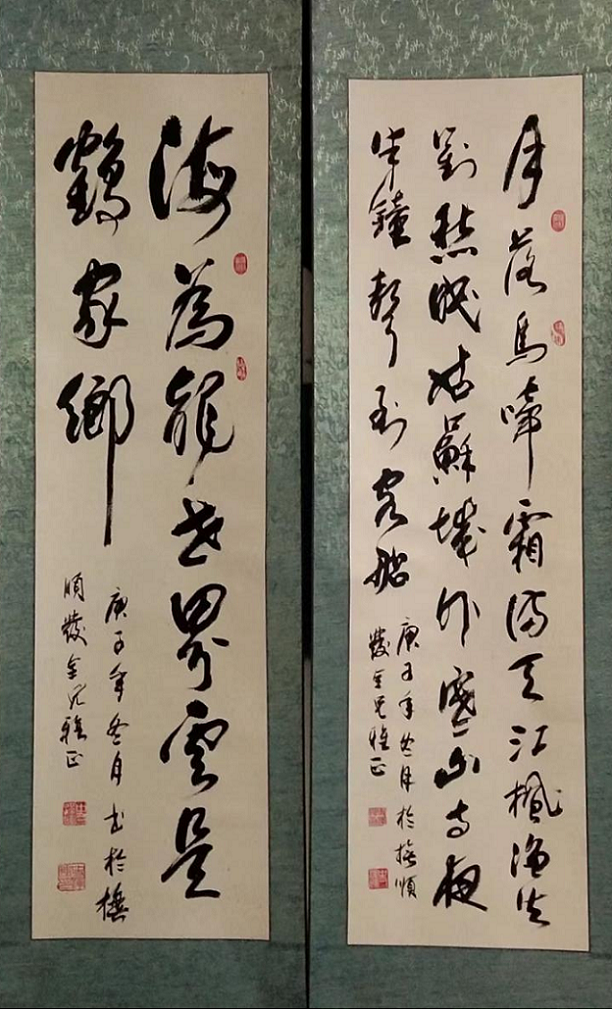 月落烏啼霜滿天江楓漁火
對愁眠姑蘇城外寒山寺夜
半鐘聲到客船
庚子年冬月於撫順
發金兄雅正
海為龍世界雲是
鶴家鄉
庚子年冬月书於撫
順發金兄雅正